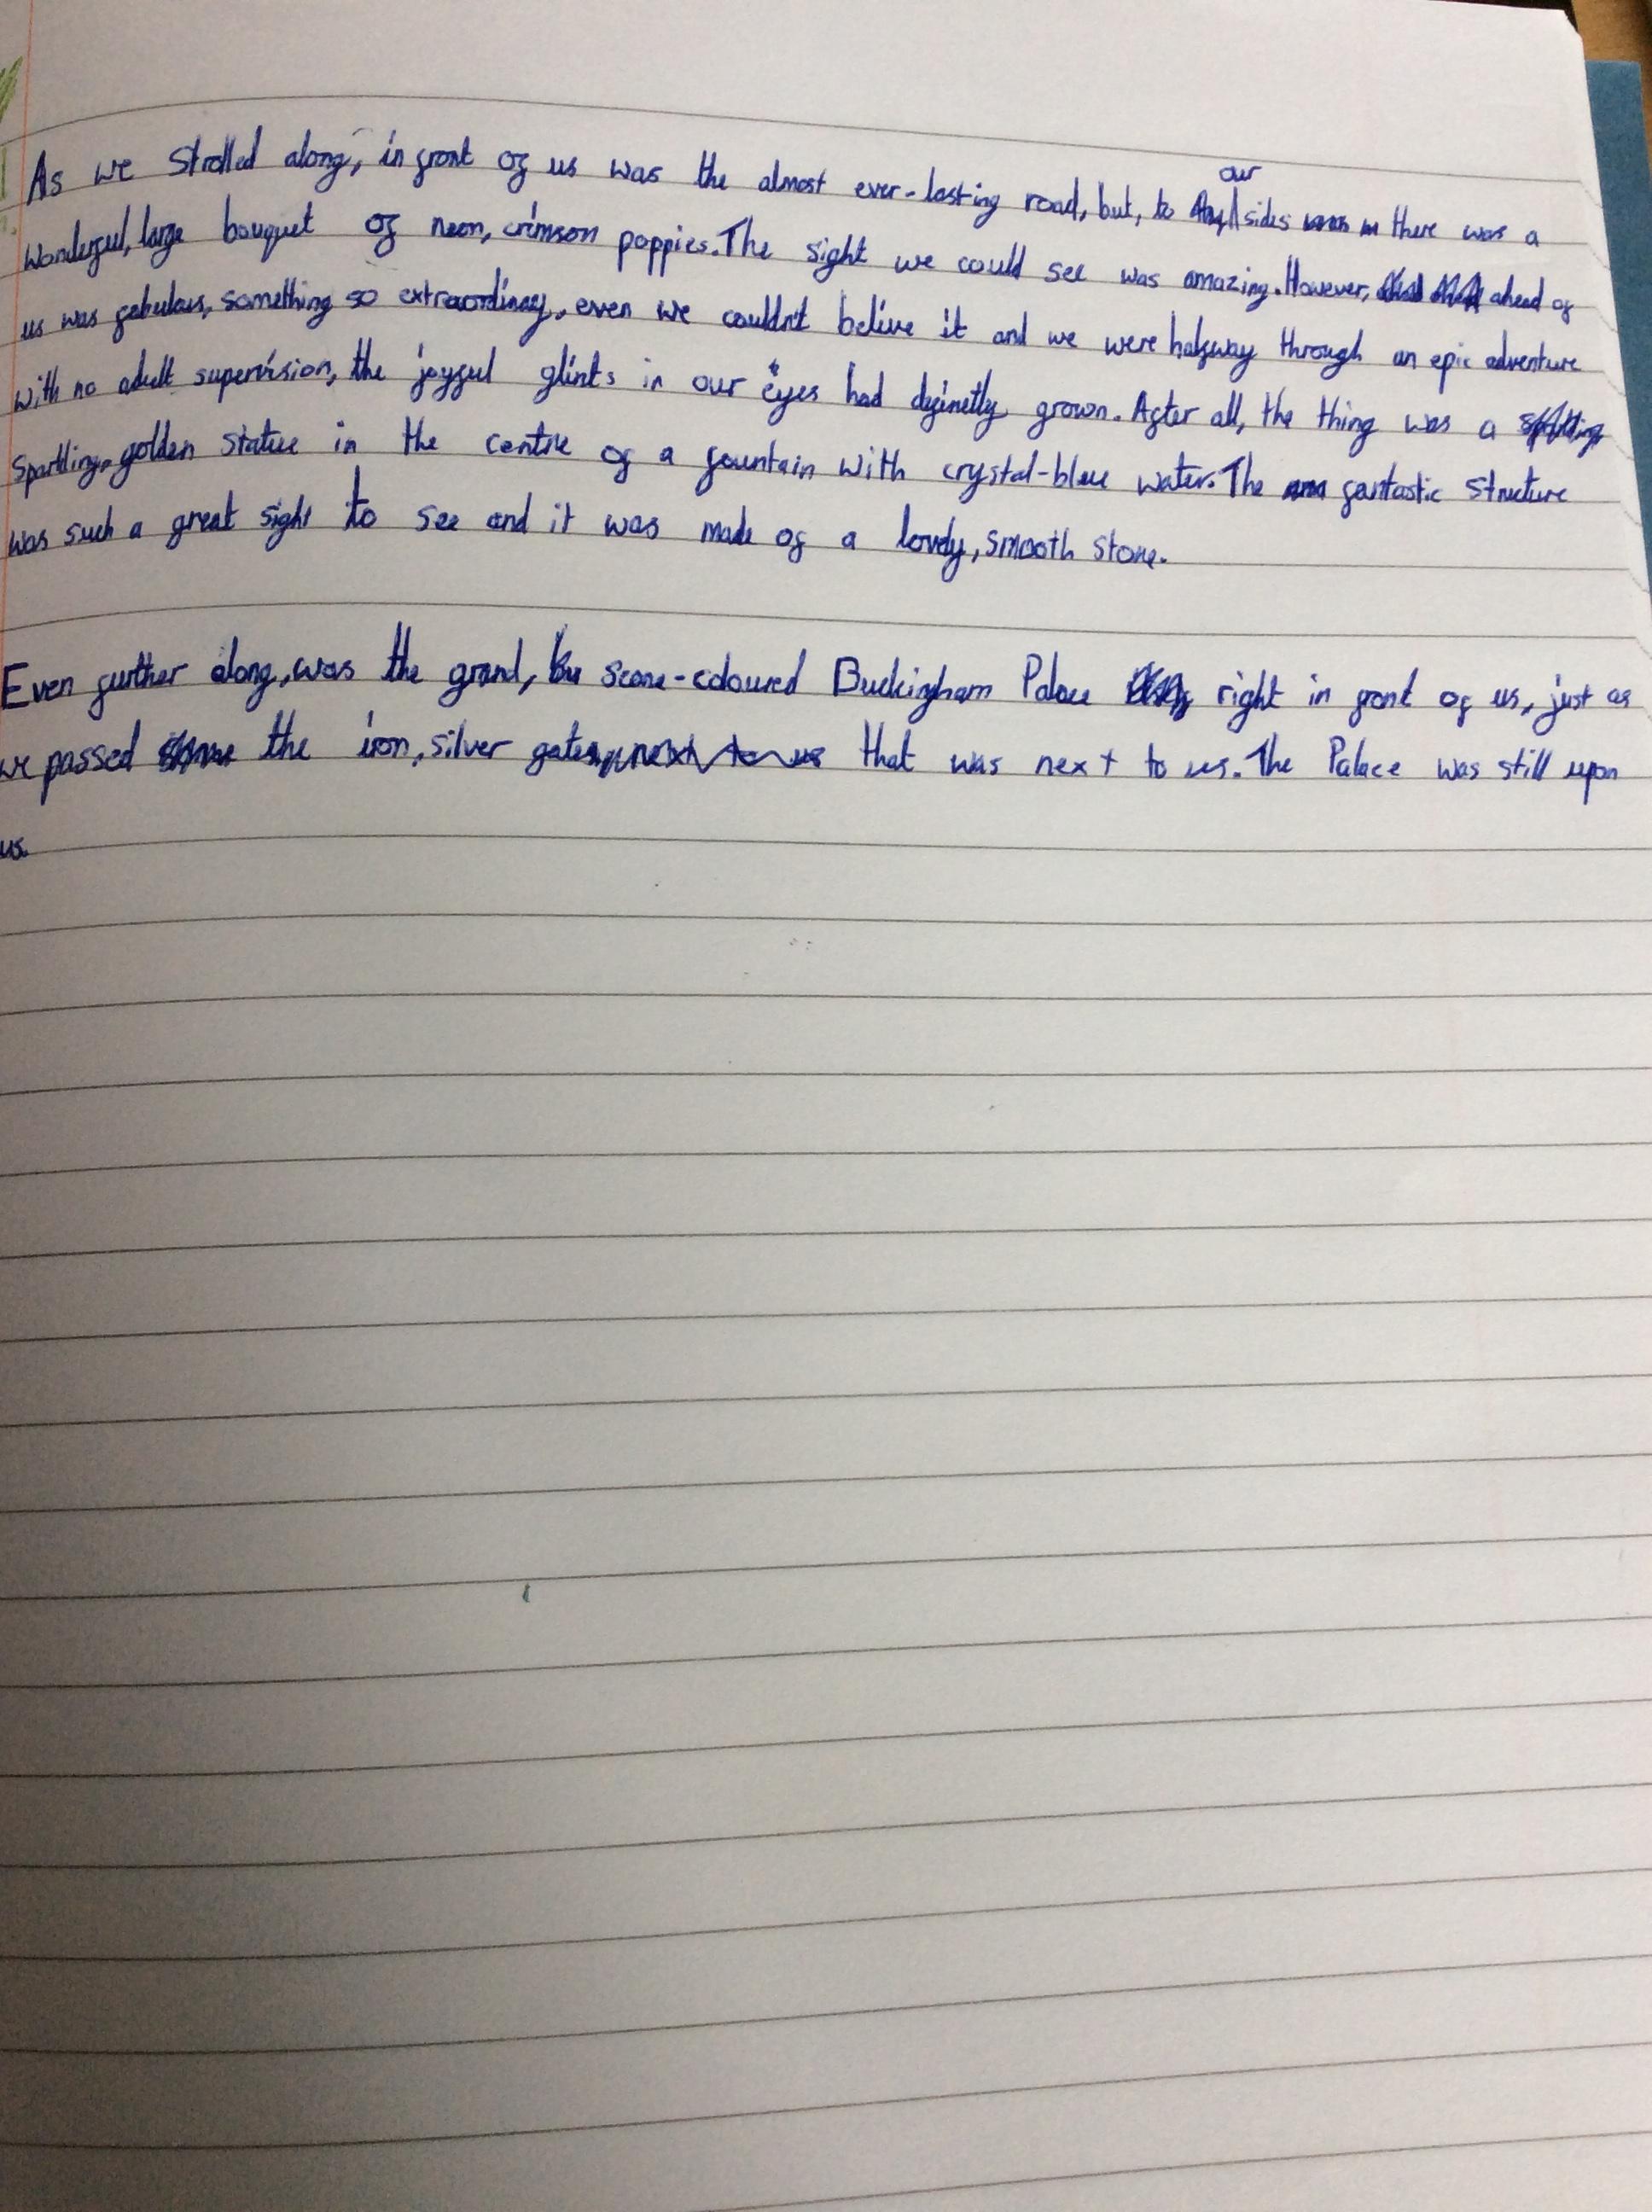 As we strolled along, in front of us was the almost ever-lasting road, but, to our sides there was a
wonderful, large bouquet of neon, crimson poppies. The sight we could see was amazing. However, ahead of
us was fabulous, something so extraordinary, even we couldn't belive it and we were halfway through an epic adventure
with no adult supervision, the joyful glints in our eyes had definetly grown. After all, the thing was a
sparkling, golden statue in the centre of a fountain with crystal-blue water. The fantastic structure
was such a great sight to see and it was made of a lovely, smooth stone.
Even further along, was the grand, -coloured Buckingham Palace right in front of us, just as
we passed the iron, silver gates that was next to us. The Palace was still upon
us.